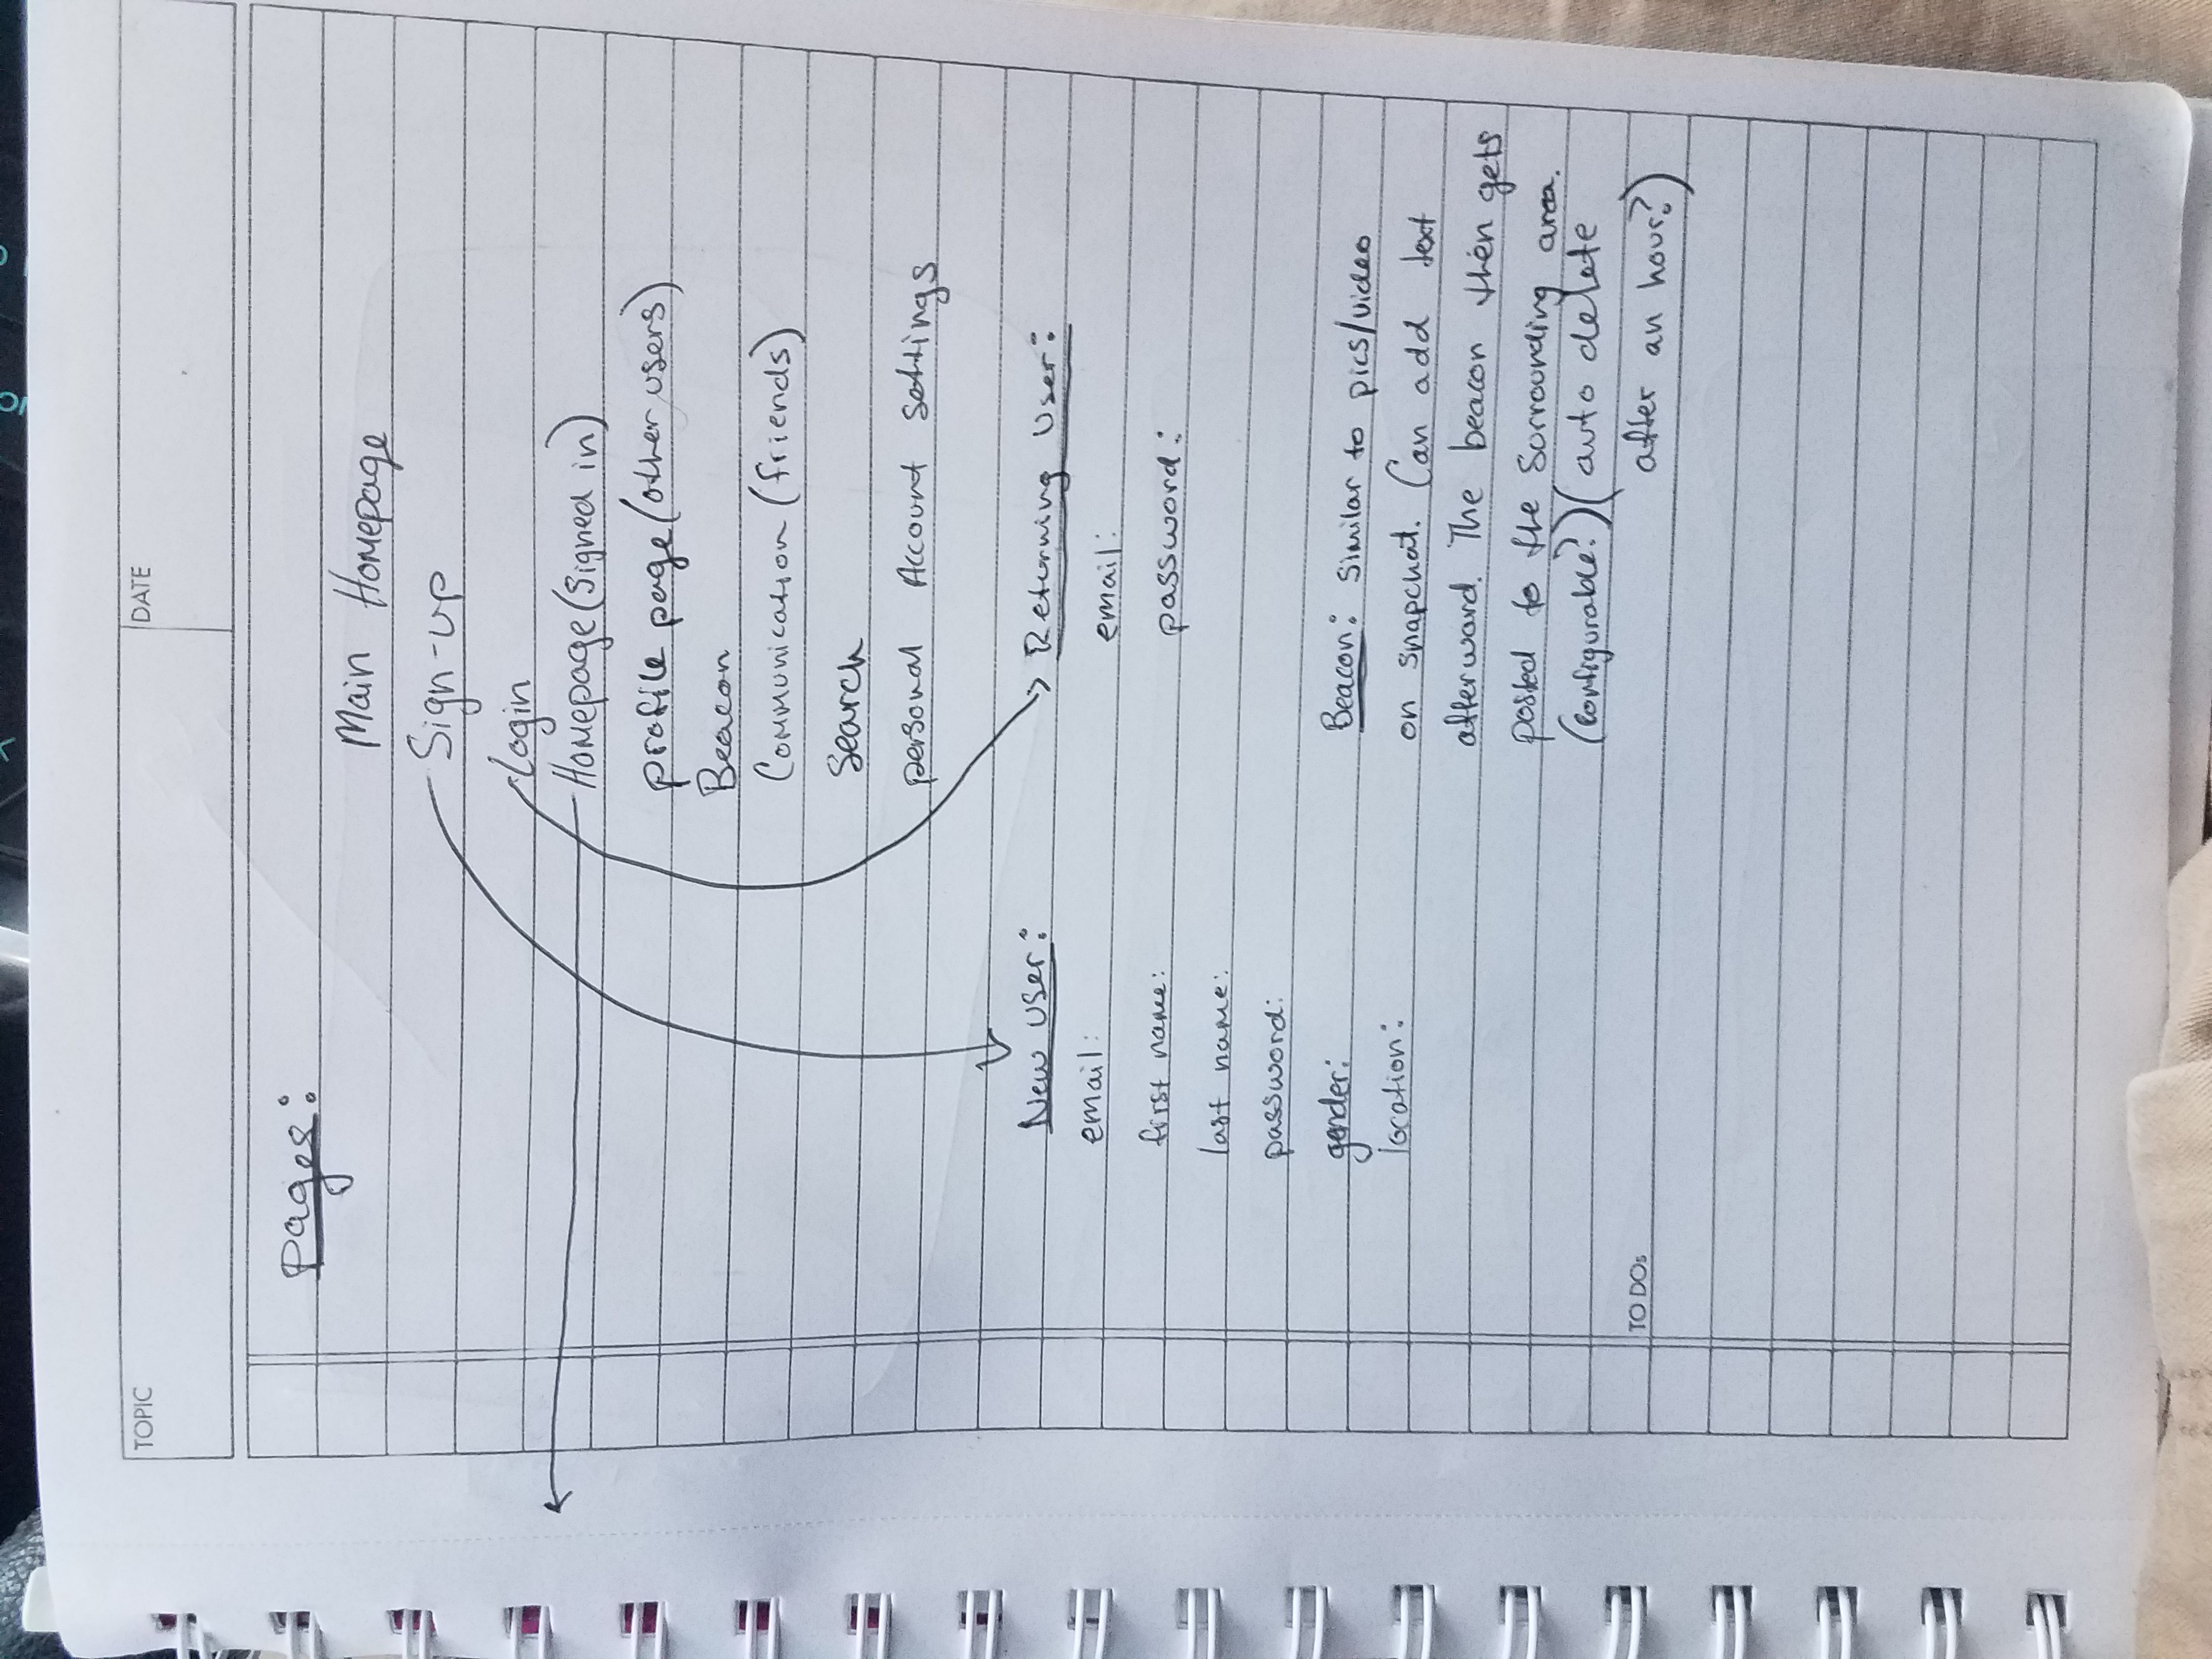 TOPIC
DATE
pages:
Main Homepage
Sign-up
Login
Homepage (signed in)
profile page (other users)
Beacon
Communication (friends)
Search
personal Account settings
New user:
email:
first name:
last name:
password:
gender:
location:
Returning User:
email:
password:
Beacon: similar to pics/video
on snapchat. Can add text
afterward. The beacon then gets
posted to the sorrounding area.
(configurable?) (auto delete
after an hour?)
TO DOs